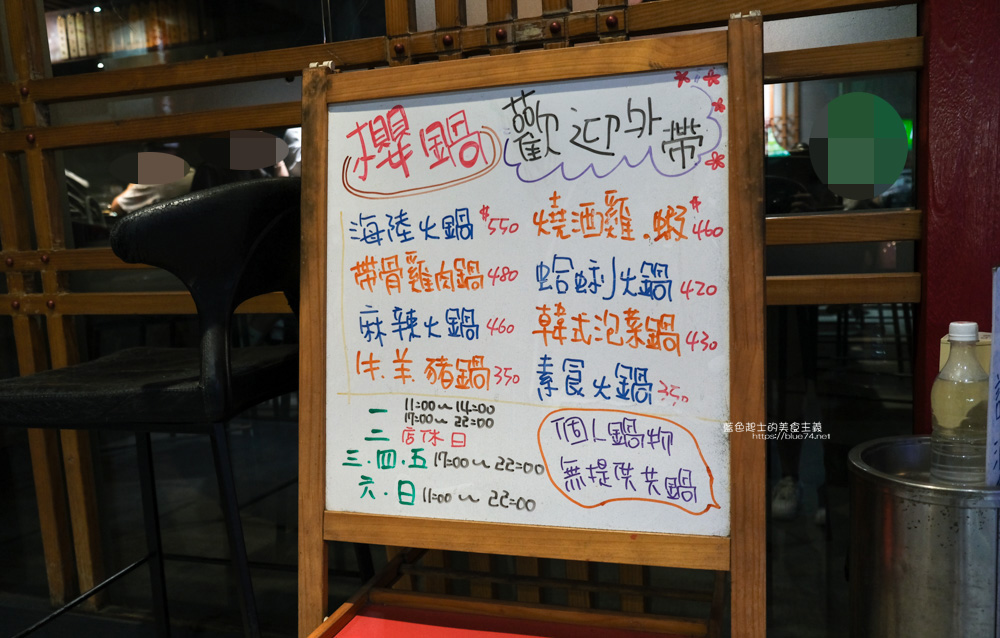 櫻鍋 歡迎外帶
海陸火鍋 $550
燒酒雞.蝦 $460
帶骨雞肉鍋 480
蛤蜊火鍋 420
麻辣火鍋 460
韓式泡菜鍋 430
牛.羊.豬鍋 350
素食火鍋 350
一 11:00~14:00
17:00~22:00
二 店休日
三.四.五 17:00~22:00
六.日 11:00~22:00
個人鍋物
無提供共鍋
藍色起士的美食主義
https://blue74.net